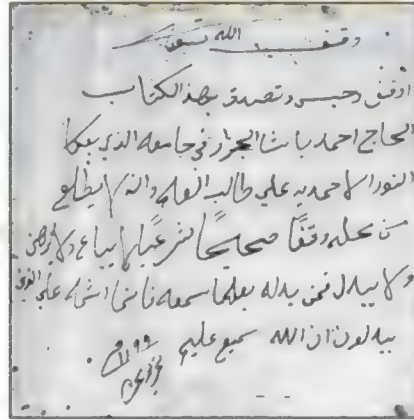 وقف لله تعالى
اوقف وحبس وتصدق بهذ الكتاب
الحاج احمد باشا الجزار في جامعه الذي بعكا
النور الاحمديه علي طالب العلم وانه لا يطلع
من محله وقفًا صحيحًا شرعيًا لا يباع ولا يرهن
ولا يبدل فمن بدله بعدما سمعه فانما اثمه علي الذين
يبدلونه ان الله سميع عليم